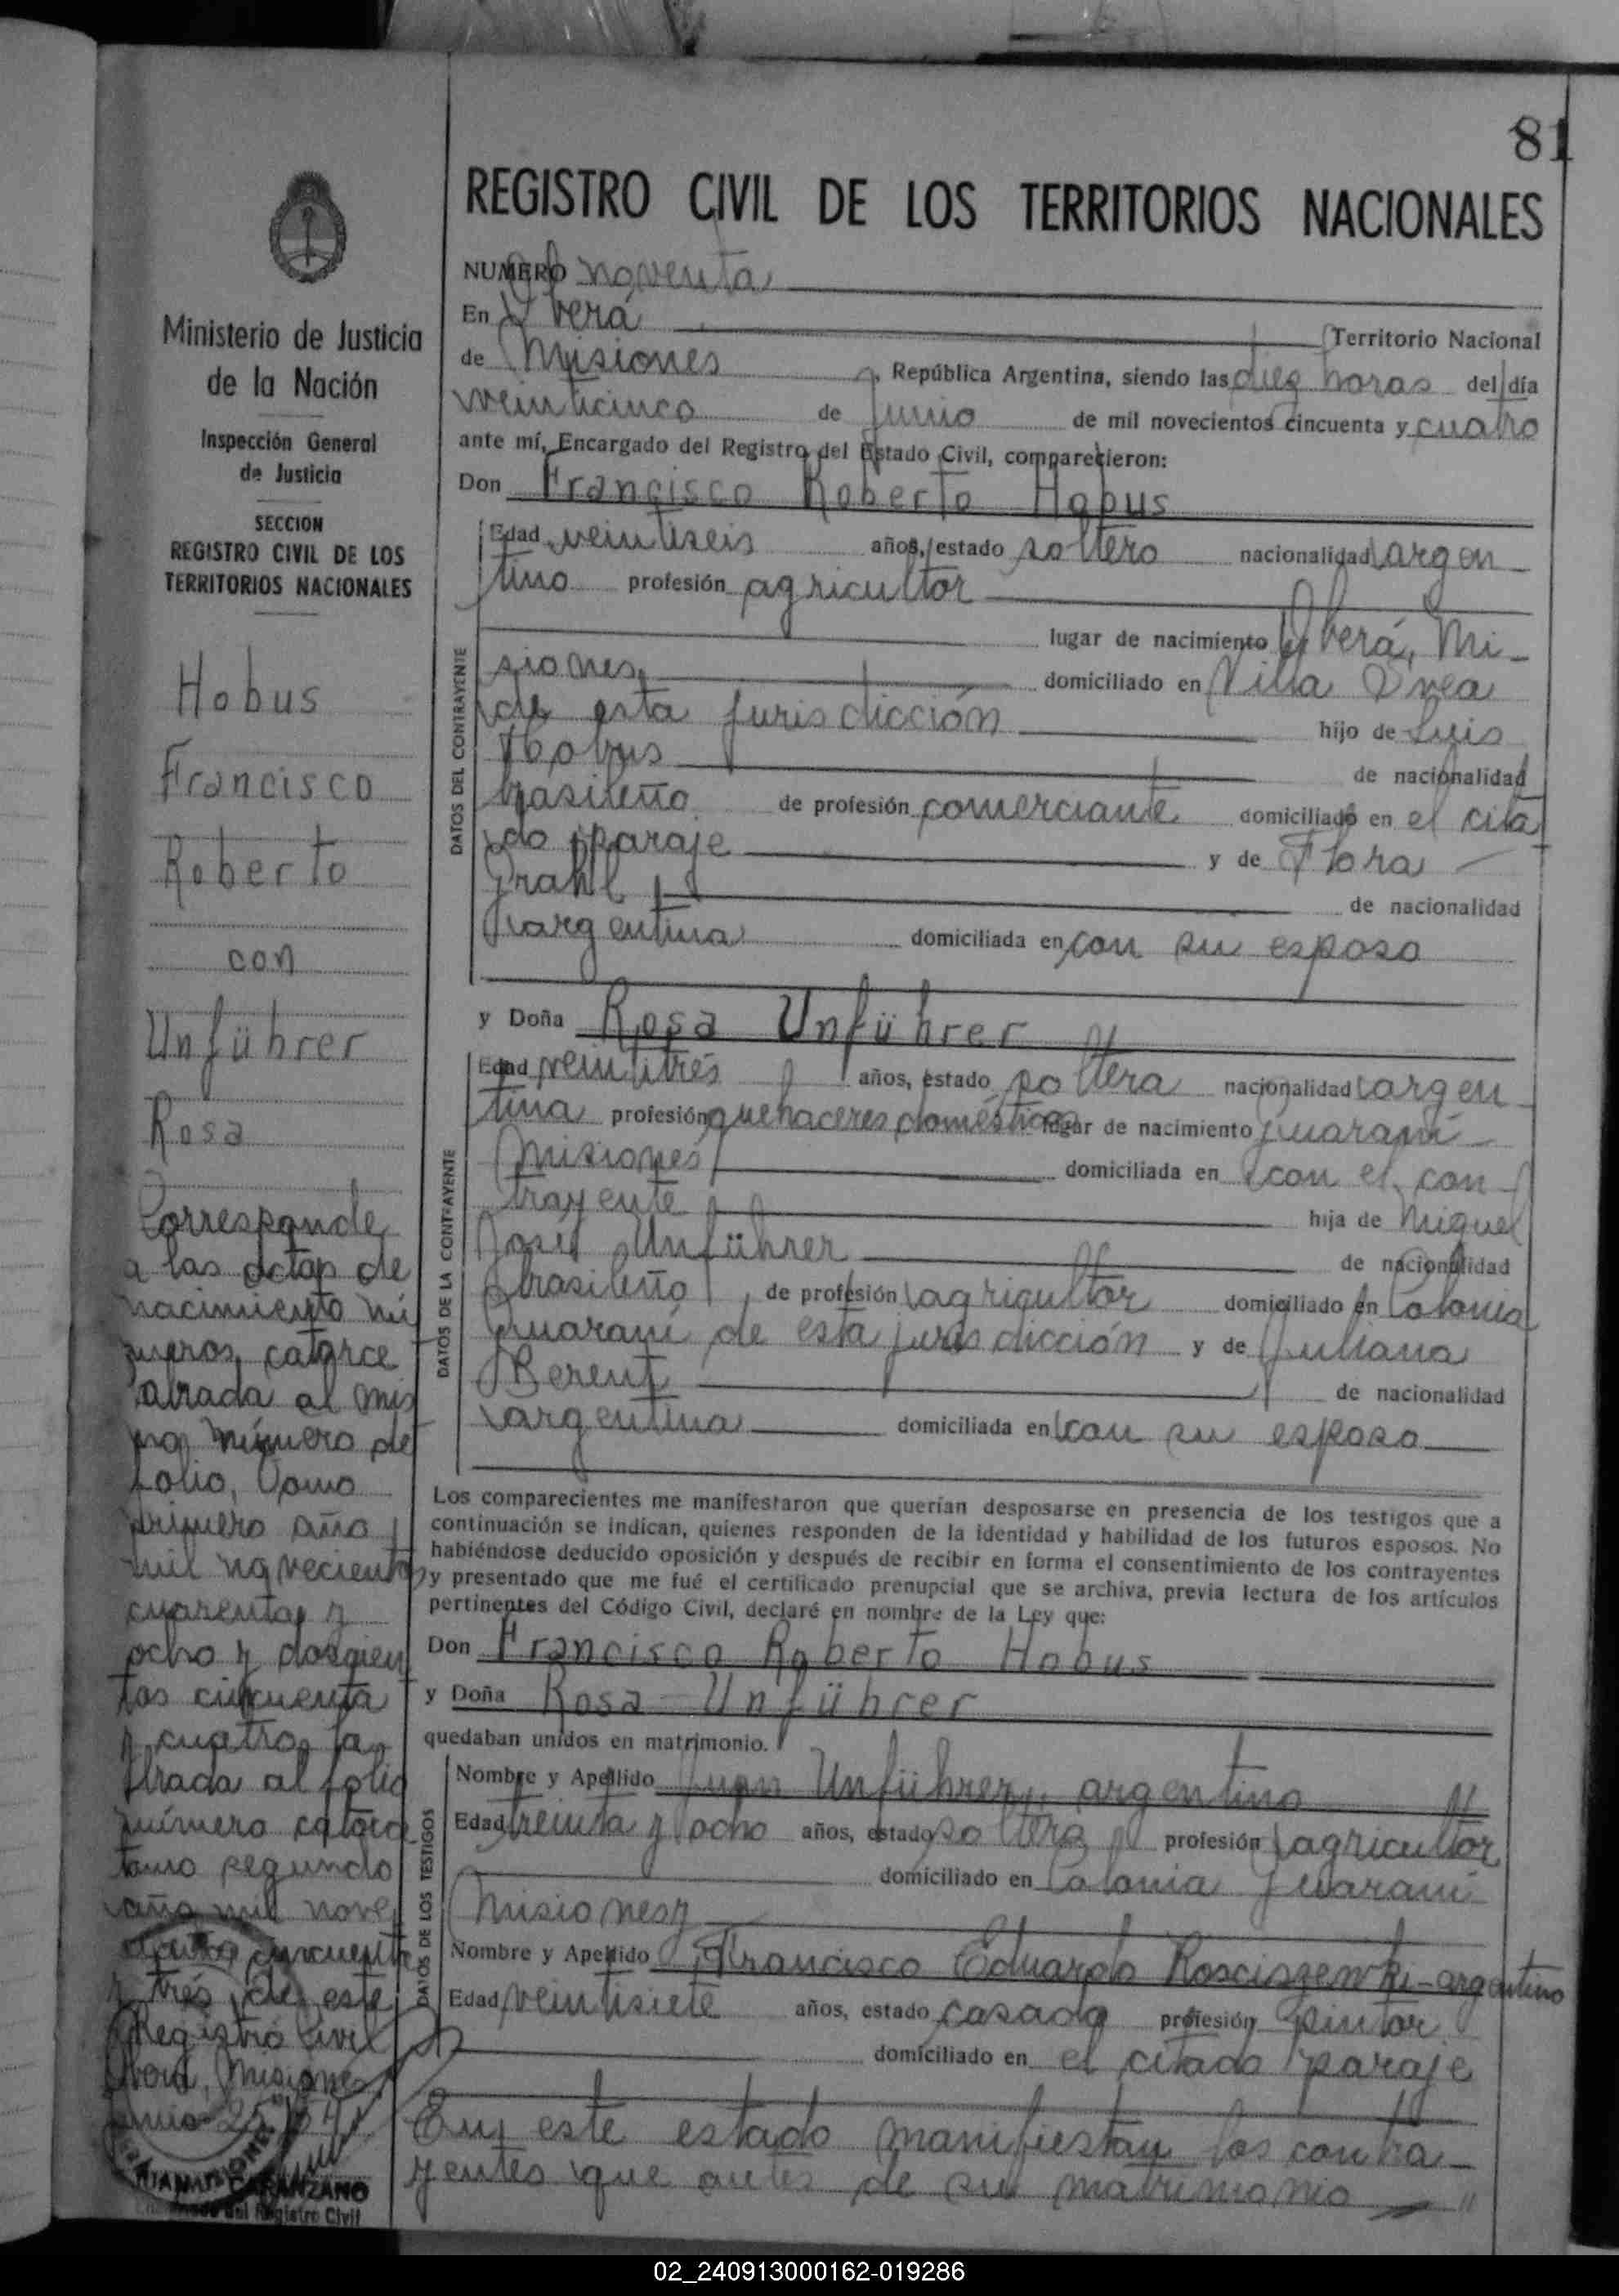 81
REGISTRO CIVIL DE LOS TERRITORIOS NACIONALES
NUMERO noventa
En Oberá Territorio Nacional
de Misiones, República Argentina, siendo las diez horas del día
veinticinco de Junio de mil novecientos cincuenta y cuatro
ante mí, Encargado del Registro del Estado Civil, comparecieron:
Don Francisco Roberto Hobus
Edad veintiseis años, estado soltero nacionalidad argen
tino profesión agricultor
lugar de nacimiento Oberá, Mi-
siones, domiciliado en Villa
de esta jurisdicción hijo de Luis
Hobus de nacionalidad
brasileño de profesión comerciante domiciliado en el cita
do paraje y de Flora
Grahl de nacionalidad
argentina domiciliada en con su esposo
y Doña Rosa Unführer
Edad veintitrés años, estado soltera nacionalidad argen
tina profesión quehaceres domésticos lugar de nacimiento Guaraní
Misiones domiciliada en con el con-
trayente hija de Miguel
José Unführer de nacionalidad
brasileño, de profesión agricultor domiciliado en Colonia
Guaraní de esta jurisdicción y de Juliana
Berent de nacionalidad
argentina domiciliada en con su esposo
DATOS DEL CONTRAYENTE
DATOS DE LA CONTRAYENTE
Los comparecientes me manifestaron que querían desposarse en presencia de los testigos que a
continuación se indican, quienes responden de la identidad y habilidad de los futuros esposos. No
habiéndose deducido oposición y después de recibir en forma el consentimiento de los contrayentes
y presentado que me fué el certificado prenupcial que se archiva, previa lectura de los artículos
pertinentes del Código Civil, declaré en nombre de la Ley que:
Don Francisco Roberto Hobus
y Doña Rosa Unführer
quedaban unidos en matrimonio.
Nombre y Apellido Juan Unführer, argentino
Edad treinta y ocho años, estado soltero profesión agricultor
domiciliado en Colonia Guaraní
Misiones y
Nombre y Apellido Francisco Eduardo Rosciszewki-argentino
Edad veintisiete años, estado casado profesión pintor
domiciliado en el citado paraje
DATOS DE LOS TESTIGOS
En este estado manifiestan los contra-
yentes que antes de su matrimonio
Ministerio de Justicia
de la Nación
Inspección General
de Justicia
SECCION
REGISTRO CIVIL DE LOS
TERRITORIOS NACIONALES
Hobus
Francisco
Roberto
con
Unführer
Rosa
Corresponde
a las actas de
nacimiento nú
meros catorce
labrada al mis
mo número de
folio, Tomo
primero año
mil novecientos
cuarenta y
ocho y doscien
tos cincuenta
y cuatro la
brada al folio
número catorce
tomo segundo
año mil nove
cientos cincuenta
y trés de este
Registro Civil
Oberá, Misiones
Junio 25/54
JUAN CARANZANO
Encargado del Registro Civil
02_240913000162-019286